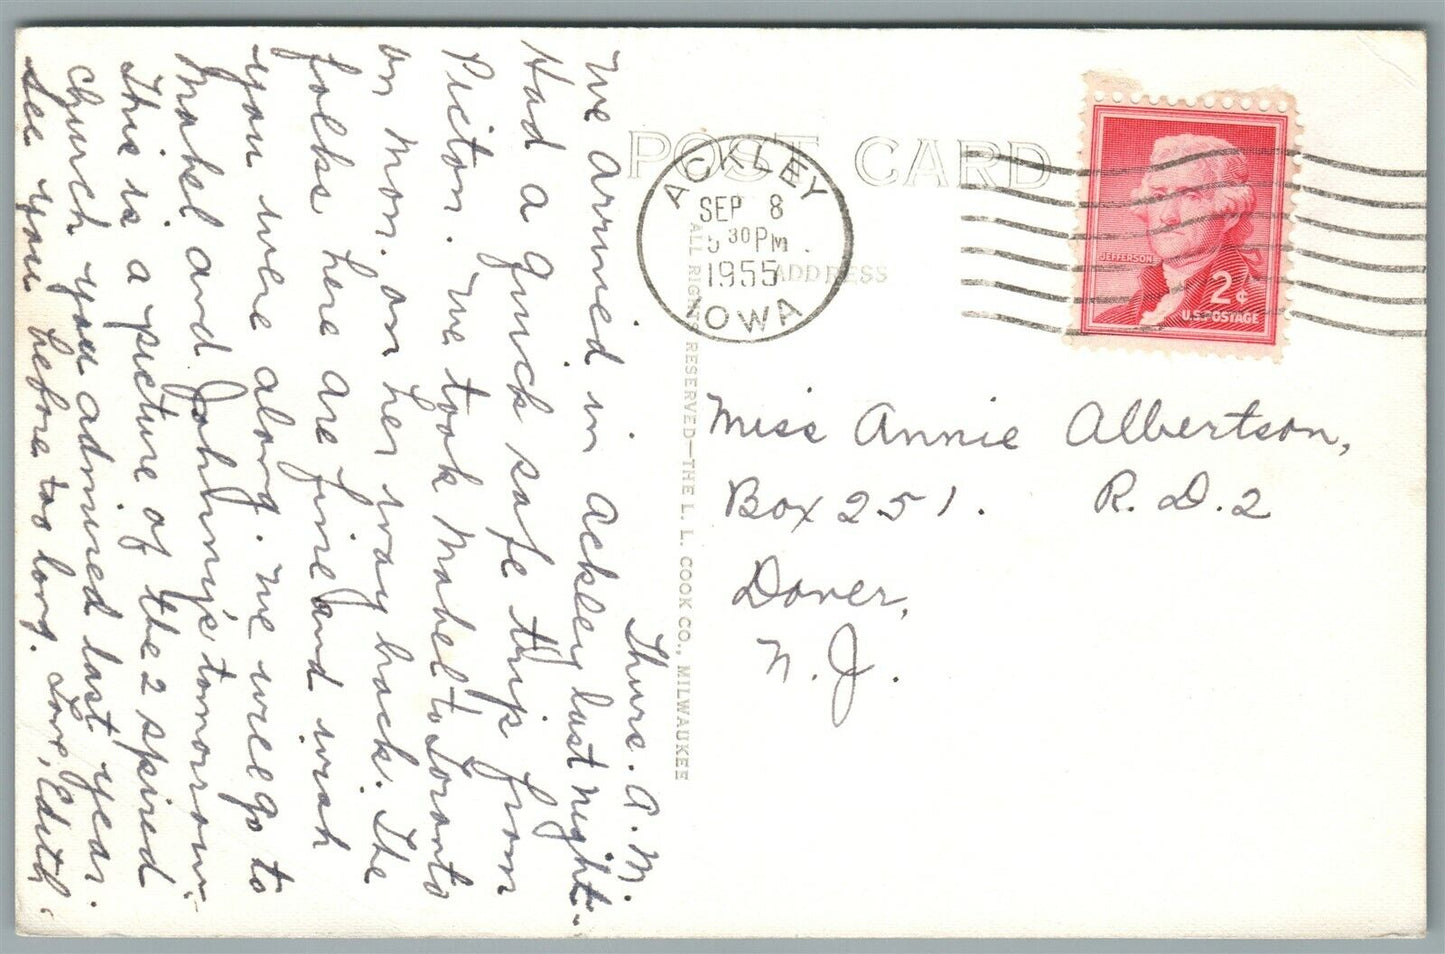 POST CARD
ADDRESS
ACKLEY
SEP 8
30 PM
1955
IOWA
JEFFERSON
2¢
U.S. POSTAGE
ALL RIGHTS RESERVED—THE L. L. COOK CO., MILWAUKEE
Miss Annie Albertson,
Box 251. R. D. 2
Dover,
N. J.
Thurs. A.M.
We arrived in Ackley last night.
Had a quick safe trip from
Picton. We took Mabel to Toronto
on Mon. on her way back. The
folks here are fine and wish
you were along. We will go to
Mabel and Johnny's tomorrow.
This is a picture of the 2 spired
church you admired last year.
See you before too long. Love, Edith.